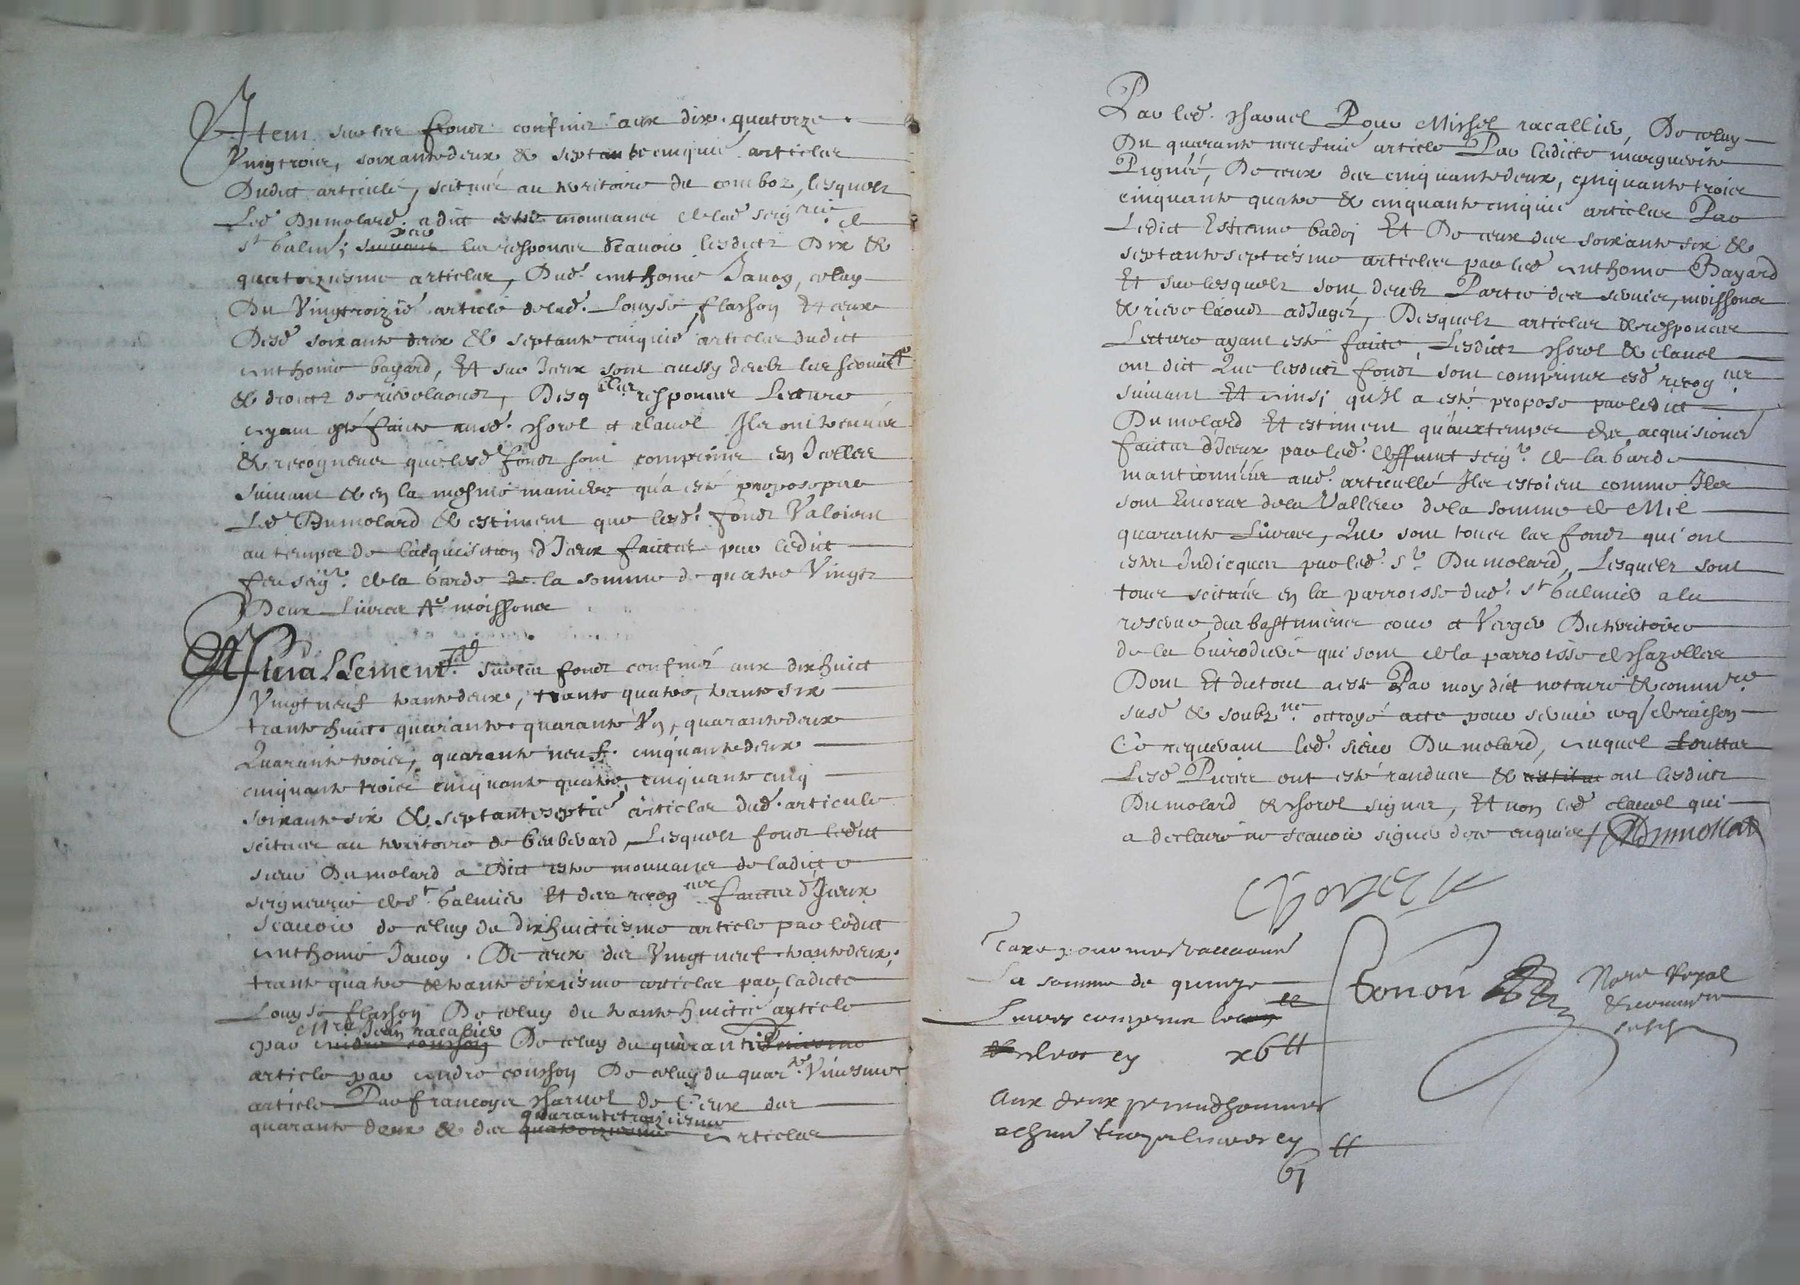 Item sur les fondz confinés aux dix, quatorze
Vingtroix, soixante deux & septante cinquié articles
Dudict articulé, scitués au territoire du comboz, lesquelz
Led. Dumolard a dict estre mouvance de lad. seigrie de
st Galmi; par les responces scavoir lesdictz Dix &
quatorziesme articles, Dud. Anthoine Javoy, celuy
Du Vingtroizié article de lad. Louyse flasson Et ceux
Desd. soixante deux & septante cinquié articles dudict
Anthoine bayard, Et sur Iceux sont aussy deubz les
& droictz de Desq.elles responces Lecture
ayant esté faicte ausd. Thorel et clavel Ilz ont
& recogneue que lesd. fondz sont comprins en Icelles
suivant & en la mesme maniere qu'a esté proposé par
Led. Dumolard & estiment que lesd. fondz Valoient
au temps de l'acquisition d'Iceux faicte par ledict
feu seigr. de la Garde la somme de quatre Vingtz
Deux Livres
Finallement sur les fondz confinés aux dix huict
Vingt neuf trante deux, trante quatre, trante six
trante huict quarante quarante Un, quarante deux
Quarante trois, quarante neuf, cinquante deux
cinquante trois cinquante quatre, cinquante cinq
soixante six & septante septié articles dud. articulé
scitués au territoire de Lesquelz fondz ledict
sieur Dumolard a Dict estre mouvance de ladicte
seigneurie de st. Galmier Et des recognces faictes d'Iceux
scavoir de celuy du Dixhuictiesme article par ledict
Anthoine Javoy. De ceux des Vingt neuf trante deux,
trante quatre & trante sixiesme articles par ladicte
Louyse flasson De celuy du trante huictié article
par Mre Jean racalier De celuy du quarantiesme
article par Andre cousson De celuy du quarte. Uniesme
article Par françoys de Ceux des
quarante deux & des quarante troisiesme articles
Par led. Pour Michel racallier, De celuy
Du quarante neufviesme article Par ladicte marguerite
De ceux des cinquante deux, cinquante trois
cinquante quatre & cinquante cinquié articles Par
Ledict Estienne badoj Et De ceux des soixante six &
septante septiesme articles par led Anthoine Bayard
Et sur lesquelz sont deubz Partie des
Desquelz articles & responces
Lecture ayant esté faicte, Lesdictz Thorel & clavel
ont dict Que lesdictz fondz sont comprins esd recognces
suivant Et Ainsi qu'Il a esté proposé par ledict
Dumolard Et estiment qu'aux temps des acquisions
faictes d'Iceux par led. deffunt seigr. de la Garde
mantionnés aud. articullé Ilz estoient comme Ilz
sont Encores de la Valleur de la somme de Mil
quarante Livres, Que sont tous les fondz qui ont
estre Indicquez par led. Sr. Dumolard, Lesquelz sont
tous scitués en la parroisse dud. st Galmier a la
reserve des bastimentz cour et Verger Du territoire
de la qui sont de la parroisse de Chazelles
Dont Et du tout acte Par moy dict notaire & commre.
susd & soubzné. octroyé acte pour servir ce q/ de raison
Ce requerant led. sieur Dumolard, Auquel touttes
Lesd Pieces ont esté randues & ont lesdictz
Dumolard & Thorel signés, Et non led clavel qui
a declairé ne scavoir signer de ce enquis / Dumollard
Taxe pour mes vaccaons
La somme de quinze
Livres
xv tt
Aux deux preudhommes
achun troys livres cy
vj tt
Notre Royal
& commre